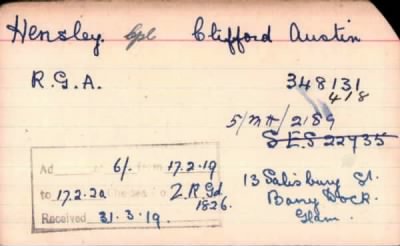 Hensley. Cpl Clifford Austin
R.G.A. 348131
418
5/MM/2189
S.E.S 22935
Ad of 6/- from 17.2.19
to 17.2.20 Z.R.Gd.
1826.
Received 31.3.19.
13 Salisbury St.
Barry Dock.
Glam.